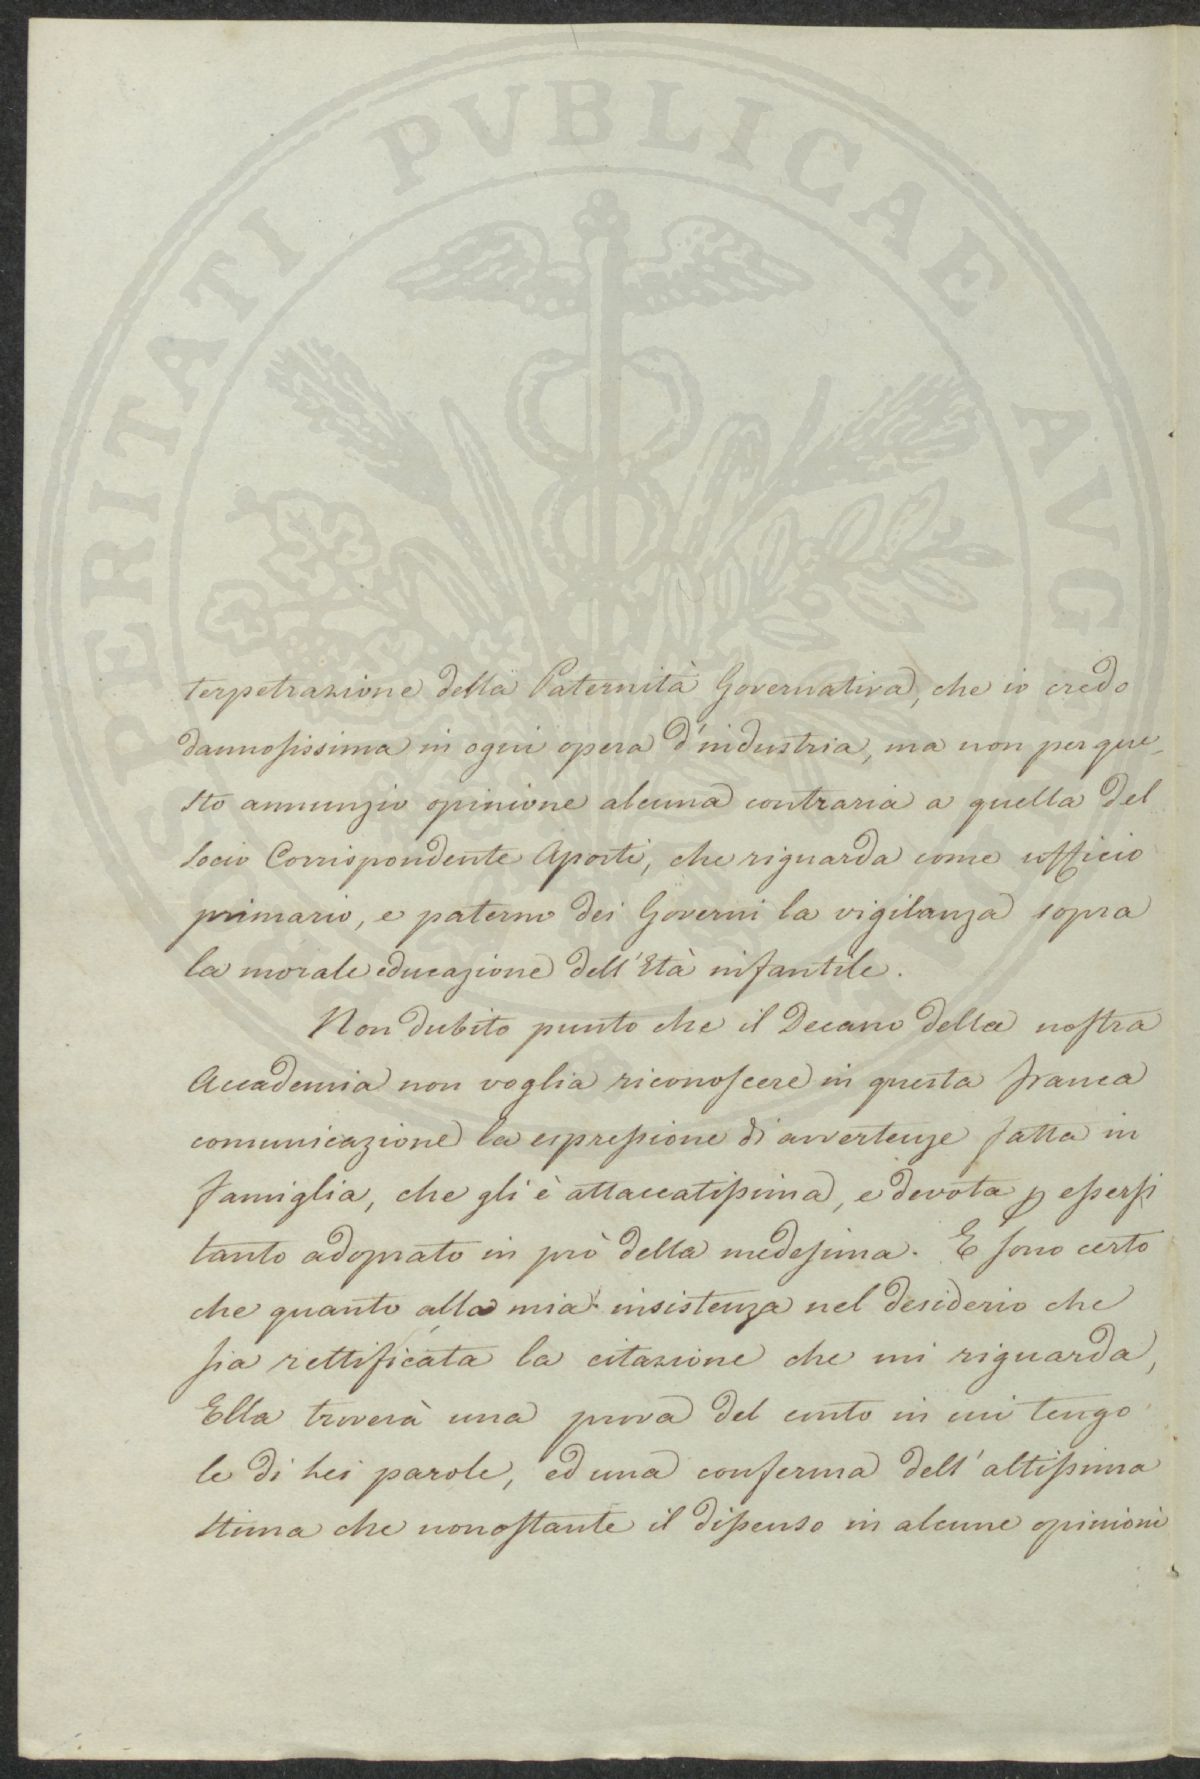 terpetrazione della Paternità Governativa, che io credo
dannosissima in ogni opera d'industria, ma non per que-
sto annunzio opinione alcuna contraria a quella del
Socio Corrispondente Aporti, che riguarda come ufficio
primario, e paterno dei Governi la vigilanza sopra
la morale educazione dell'Età infantile.
Non dubito punto che il Decano della nostra
Accademia non voglia riconoscere in questa franca
comunicazione la espressione di avvertenze fatta in
famiglia, che gli è attaccatissima, e devota p essersi
tanto adoprato in prò della medesima. E sono certo
che quanto alla mia insistenza nel desiderio che
sia rettificata la citazione che mi riguarda,
Ella troverà una prova del conto in cui tengo
le di Lei parole, ed una conferma dell'altissima
stima che nonostante il dissenso in alcune opinioni
PROSPERITATI PVBLICAE AVG